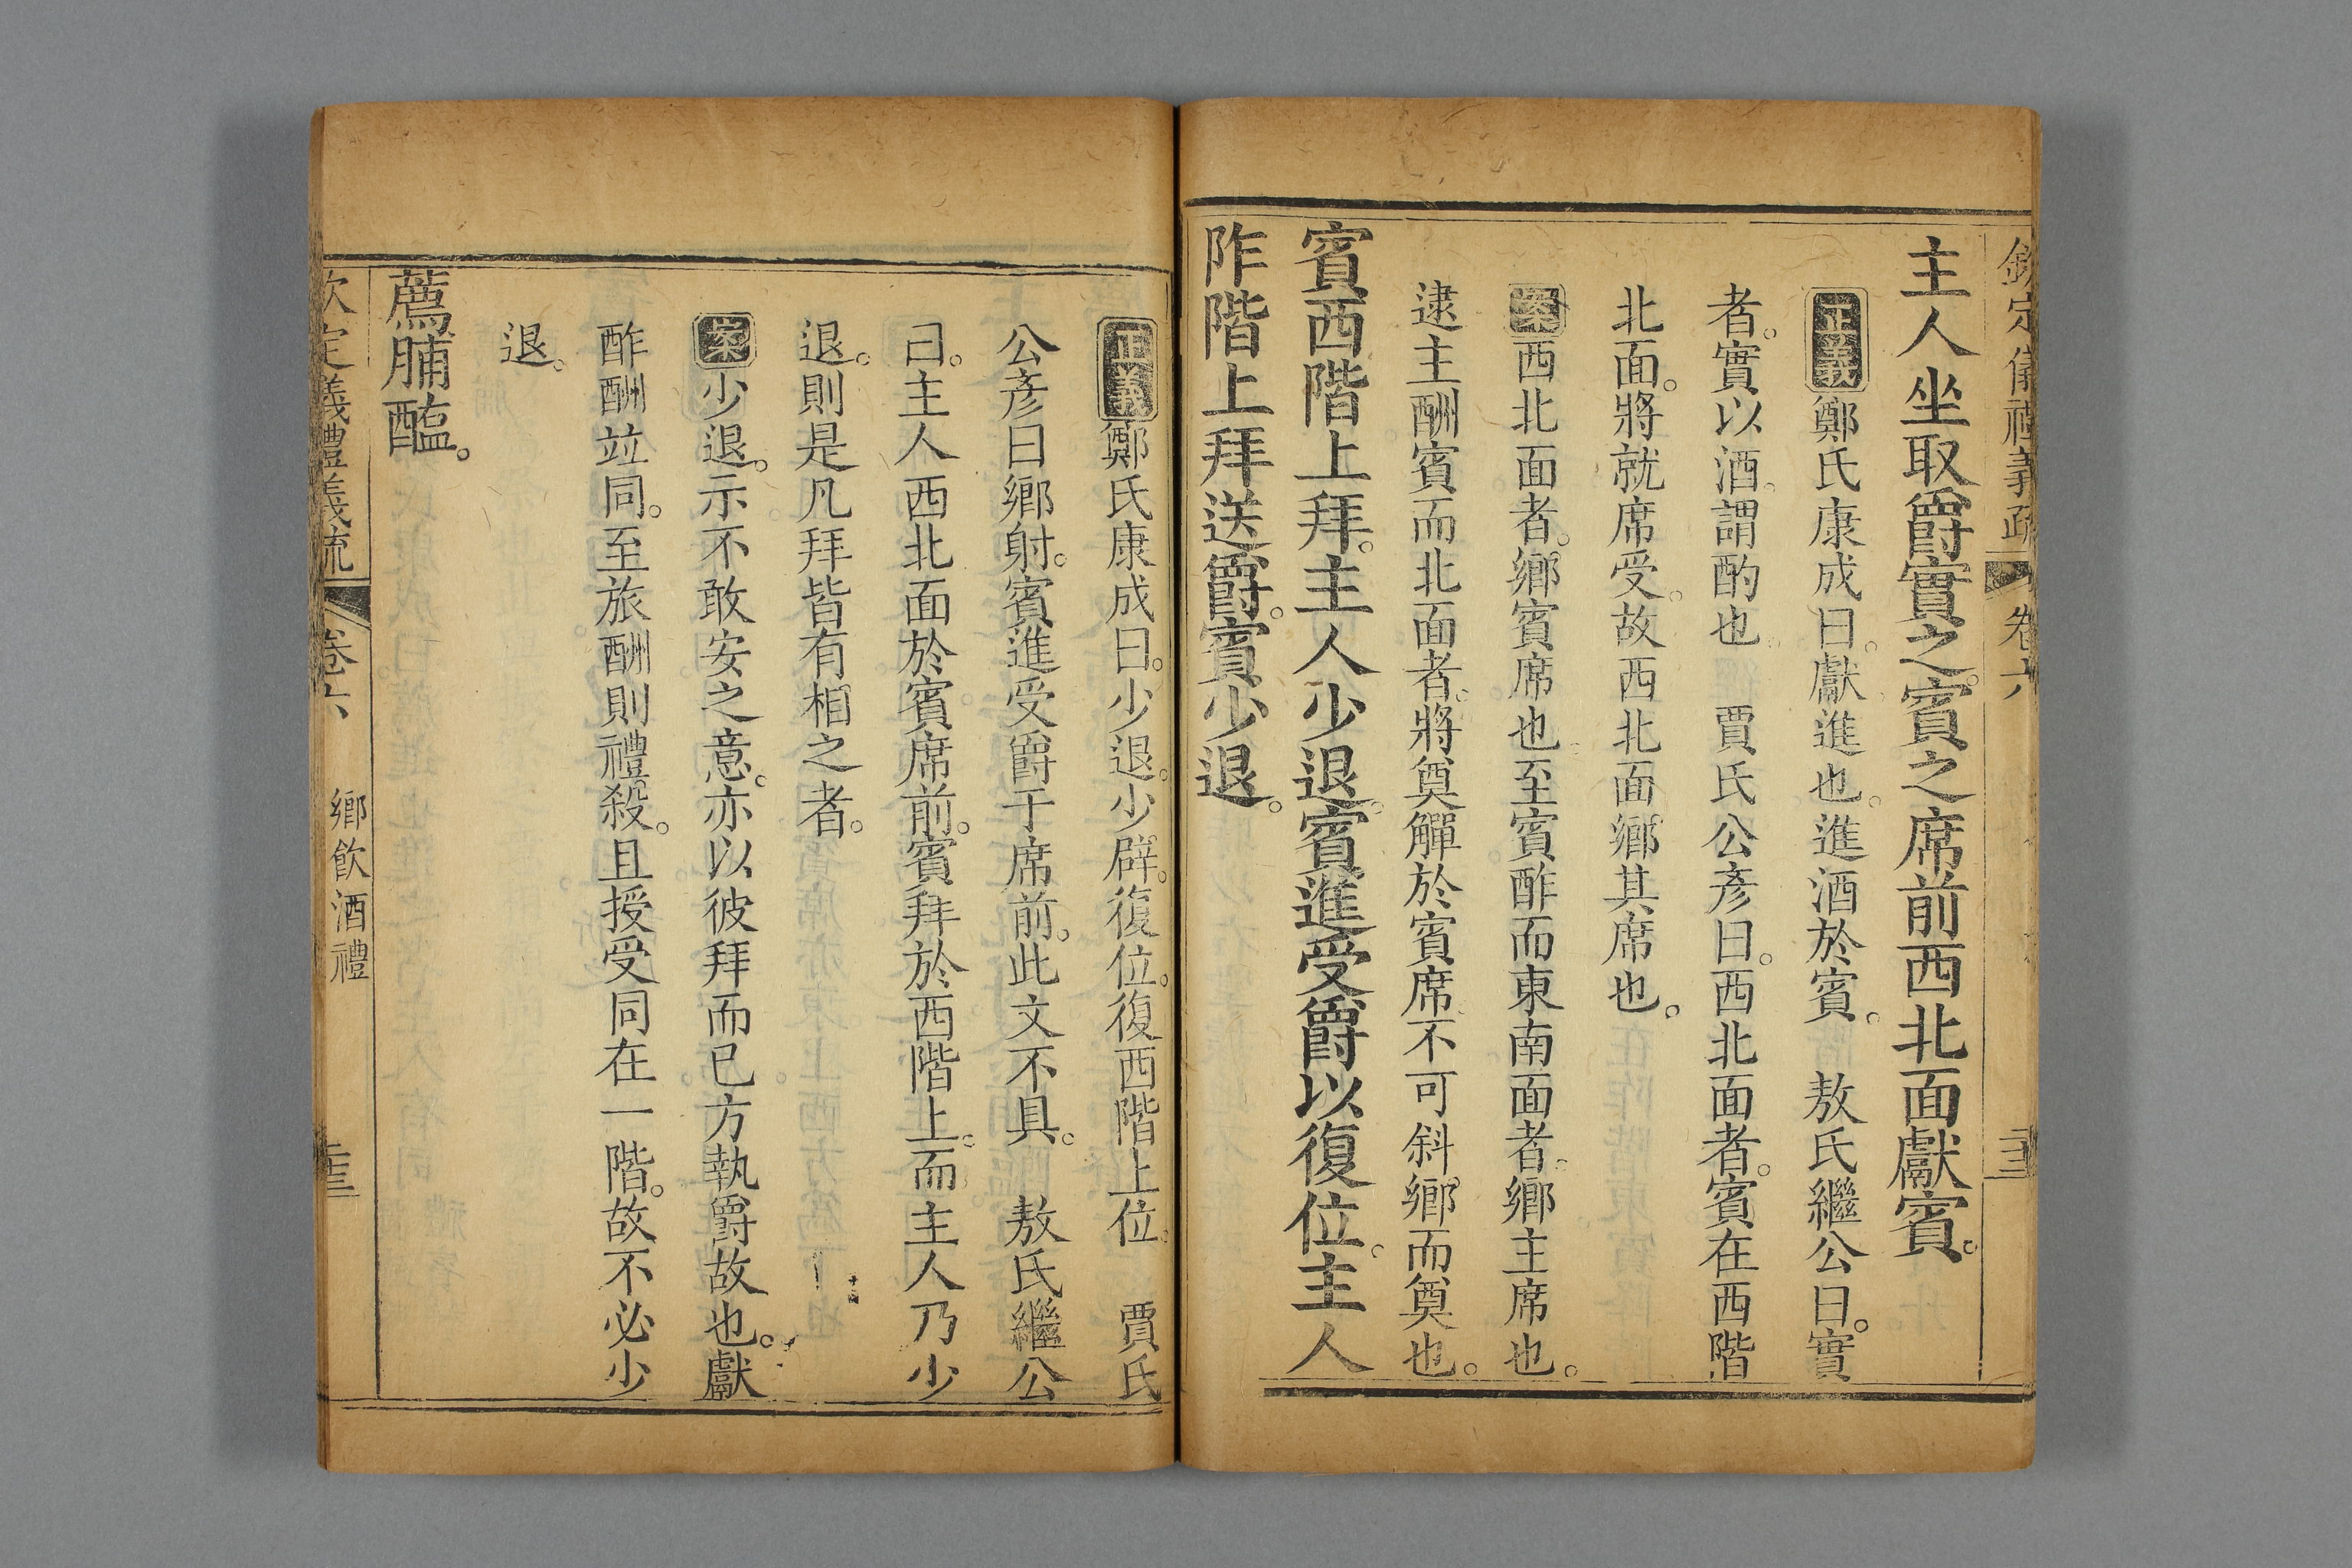 欽定儀禮義疏 卷六
主人坐取爵實之。賓之席前西北面獻賓。
正義鄭氏康成曰。獻進也。進酒於賓。 敖氏繼公曰。實
者。實以酒。謂酌也。 賈氏公彥曰。西北面者。賓在西階
北面。將就席受。故西北面鄉其席也。
案西北面者。鄉賓席也。至賓酢而東南面者。鄉主席也。
逮主酬賓而北面者。將奠觶於賓席。不可斜鄉而奠也。
賓西階上拜。主人少退。賓進受爵以復位。主人
阼階上拜送爵。賓少退。
正義鄭氏康成曰。少退。少辟。復位。復西階上位。 賈氏
公彥曰鄉射。賓進受爵于席前。此文不具。 敖氏繼公
曰。主人西北面於賓席前。賓拜於西階上。而主人乃少
退。則是凡拜皆有相之者。
案少退。示不敢安之意。亦以彼拜而已方執爵故也。獻
酢酬竝同。至旅酬則禮殺。且授受同在一階。故不必少
退。
薦脯醢。
欽定義禮義疏 卷六 鄉飲酒禮